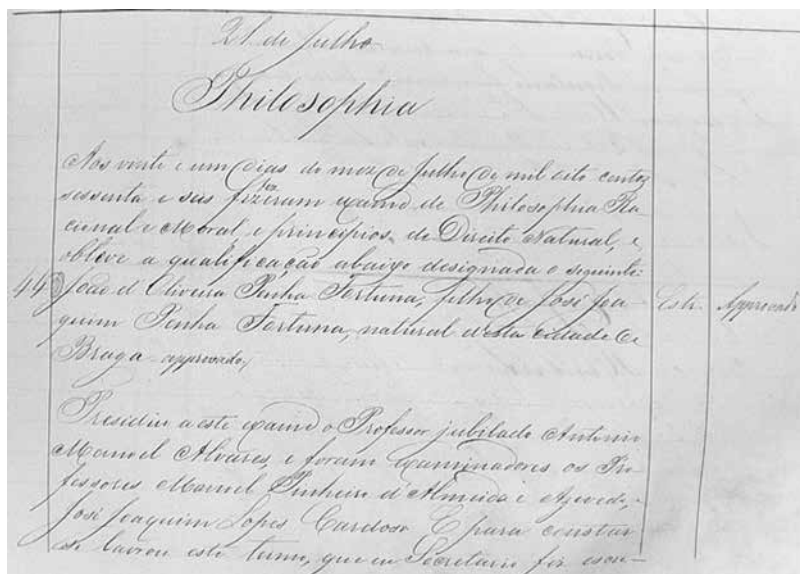 21 de Julho
Philosophia
Aos vinte e um dias do mez de Julho de mil oito centos
sessenta e seis fizeram exame de Philosophia Ra-
cional e Moral e principios de Direito Natural, e
obteve a qualificação abaixo designada o seguinte:
44 João d'Oliveira Penha Fortuna, filho de José Joa- Estr. Approvado
quim Penha Fortuna, natural d'esta cidade de
Braga approvado,
Presidiu a este exame o Professor jubilado Antonio
Manoel Alvares, e foram examinadores os Pro-
fessores Manoel Pinheiro d'Almeida e Azevedo, e
José Joaquim Lopes Cardoso. E para constar
se lavrou este termo, que eu Secretario fiz escre-